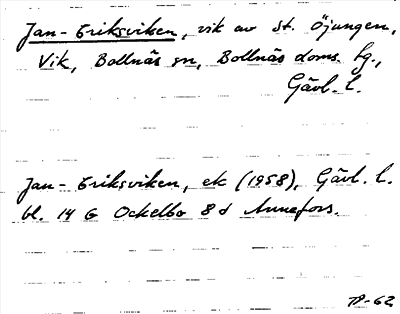 Jan-Eriksviken, vik av St. Öjungen,
Vik, Bollnäs sn, Bollnäs doms. fg.,
Gävl. l.
Jan-Eriksviken, ek (1958), Gävl. l.
bl. 14 G Ockelbo 8 d Annefors.
TP-62